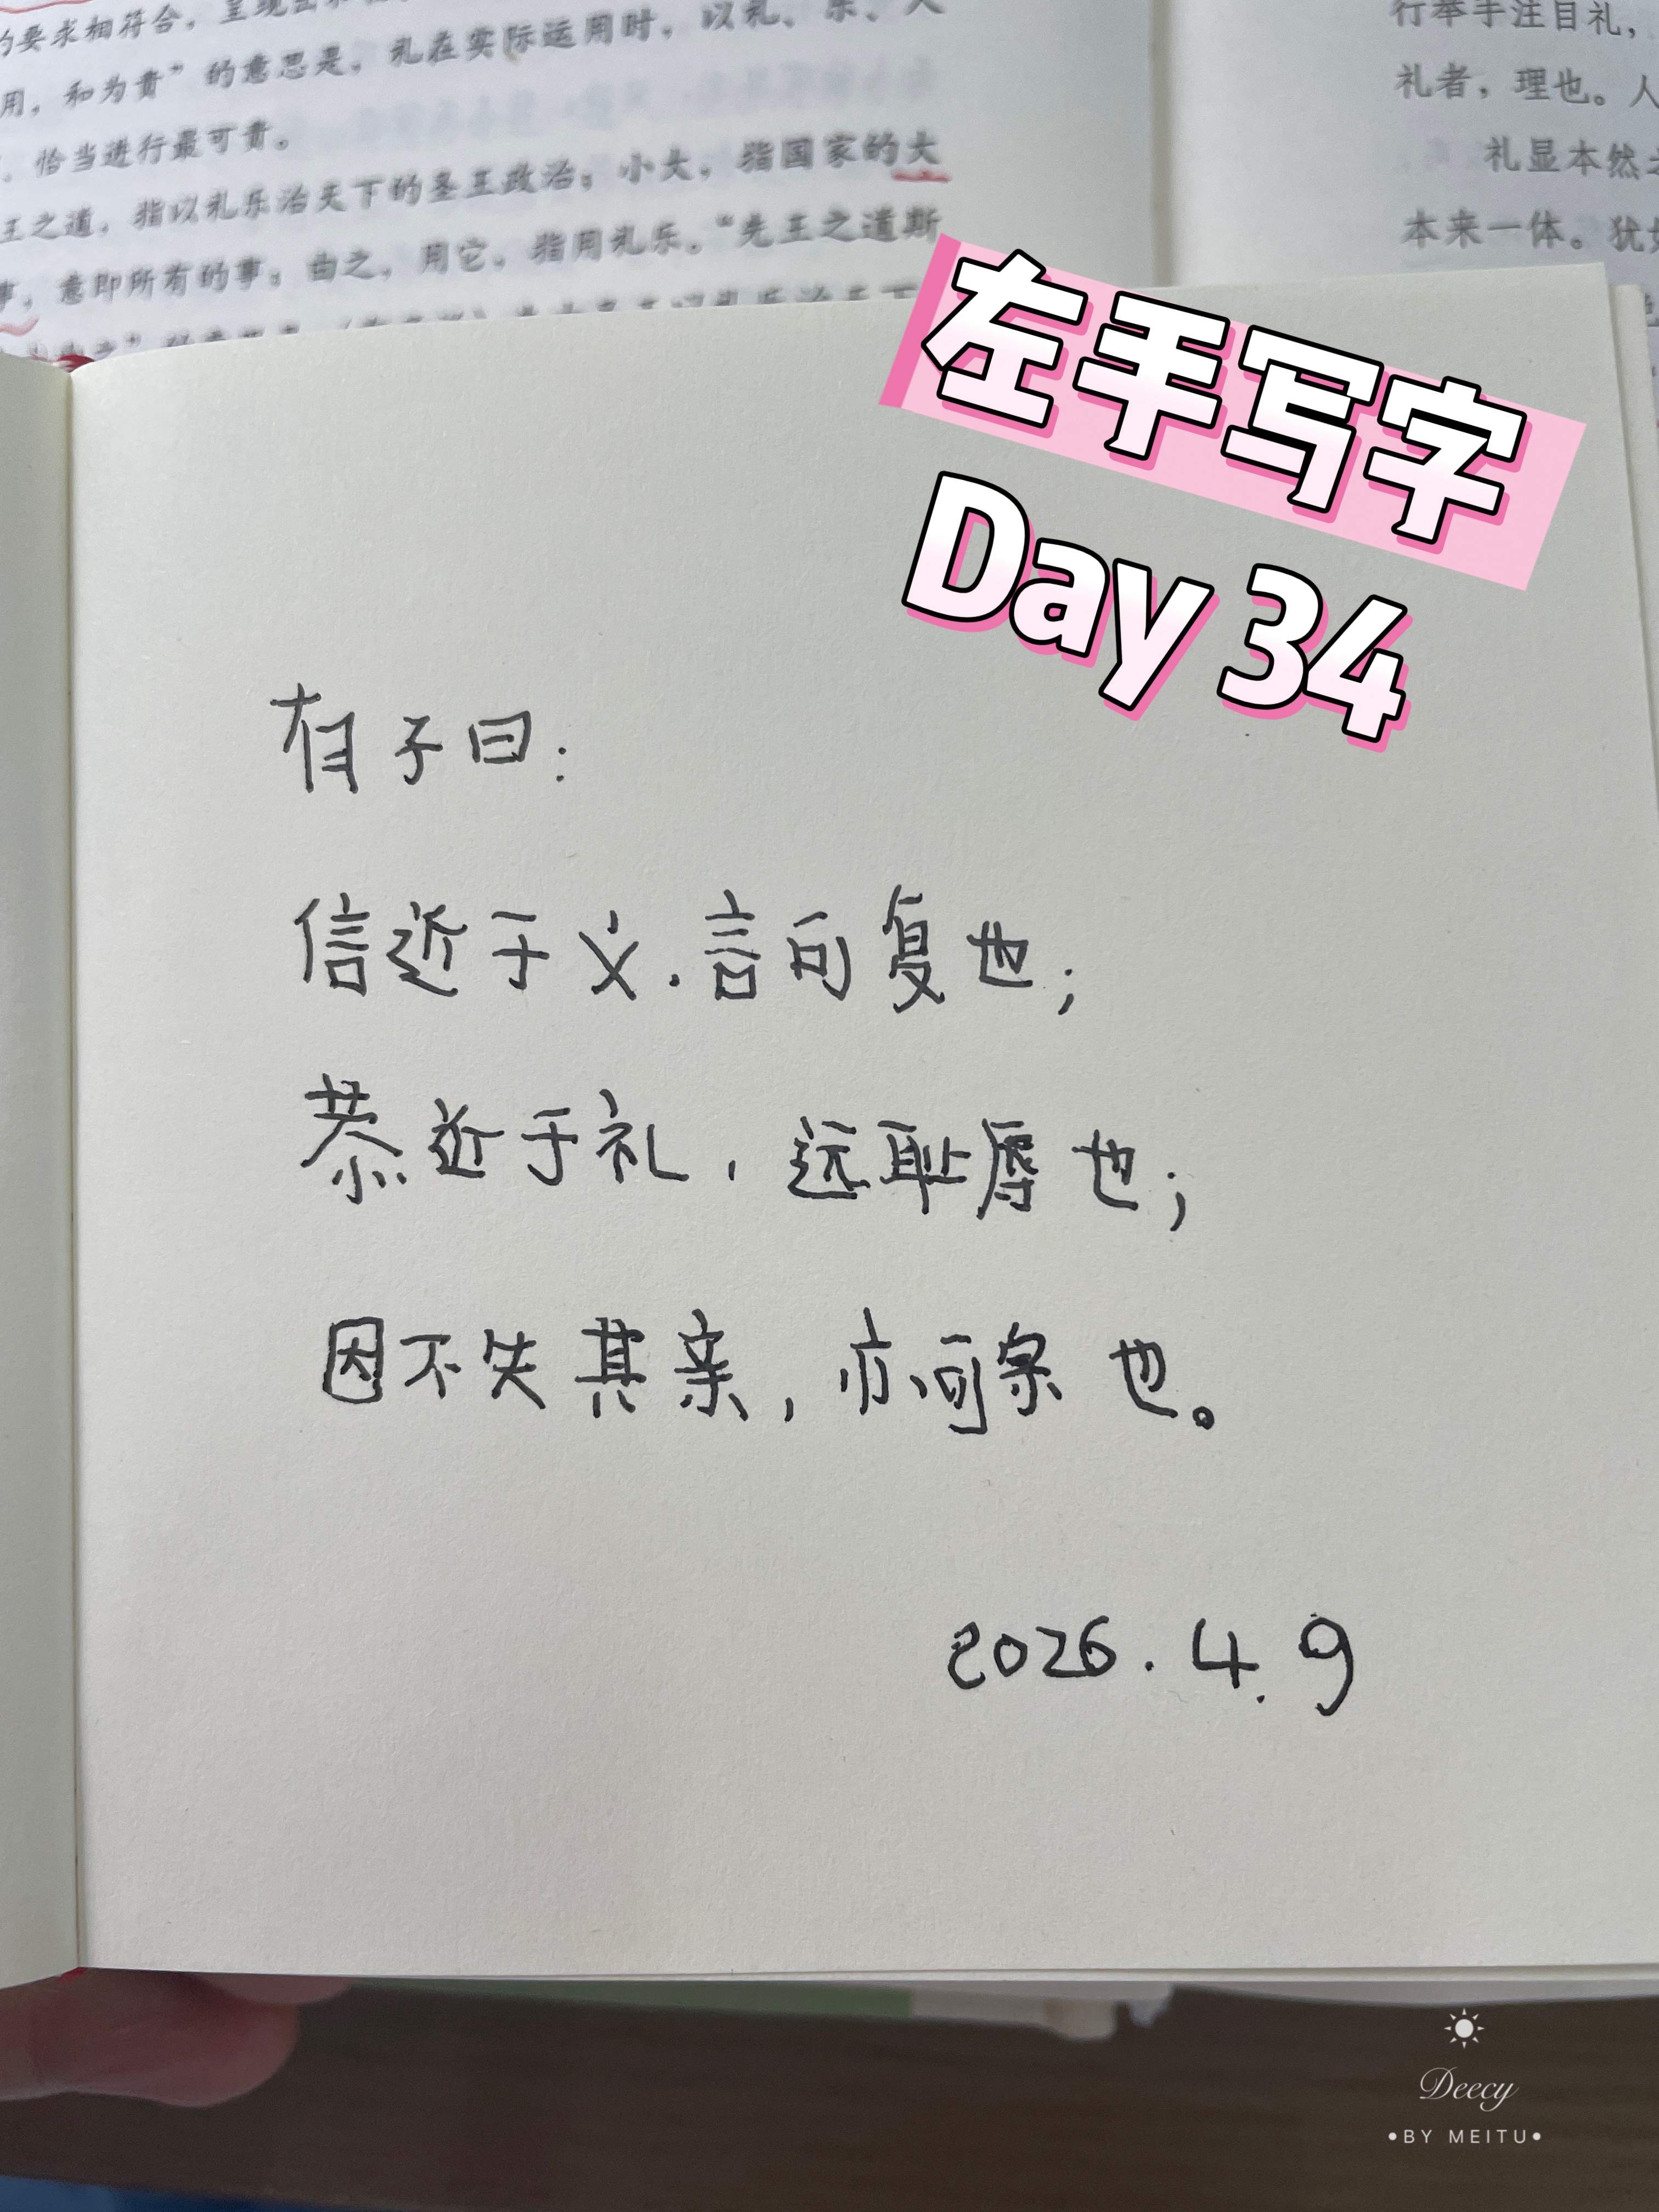 的要求相符合，呈现出和
用，和为贵”的意思是，礼在实际运用时，以礼、乐、人
、恰当进行最可贵。
王之道，指以礼乐治天下的圣王政治；小大，指国家的大
事，意即所有的事；由之，用它，指用礼乐。“先王之道斯
行举手注目礼，
礼者，理也。人
礼显本然
本来一体。犹
左手写字
Day 34
有子曰：
信近于义，言可复也；
恭近于礼，远耻辱也；
因不失其亲，亦可宗也。
2026.4.9
Deecy
•BY MEITU•